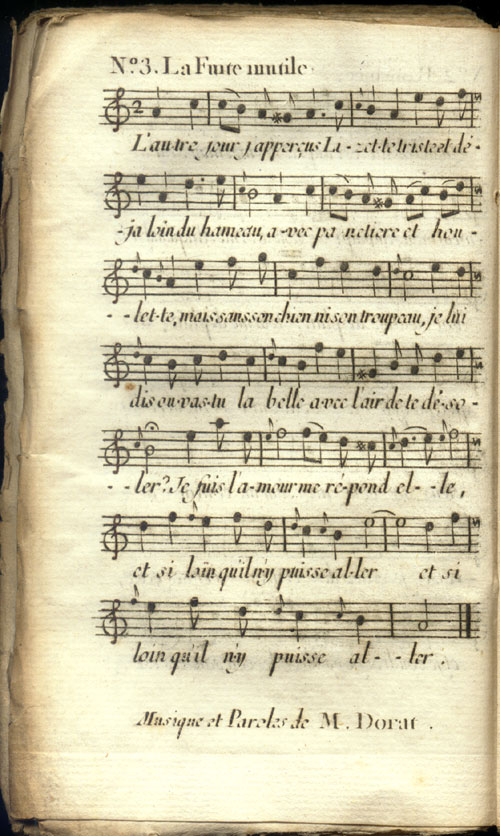 Nº. 3. La Fuite inutile.
L'au-tre jour j'apperçus Li-zet-te triste et dé-
-ja loin du hameau, a-vec pa netiere et hou-
--let-te, mais sans son chien ni son troupeau, je lui
dis ou-vas-tu la belle avec l'air de te dé-so-
--ler? Je fuis l'a-mour me ré-pond el--le,
et si loin qu'il n'y puisse al-ler et si
loin qu'il n'y puisse al--ler.
Musique et Paroles de M. Dorat.